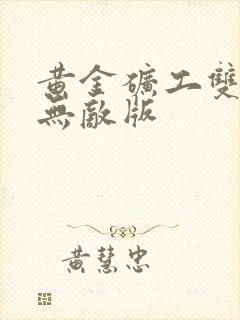 黃金礦工雙
無敵版
黃慧忠